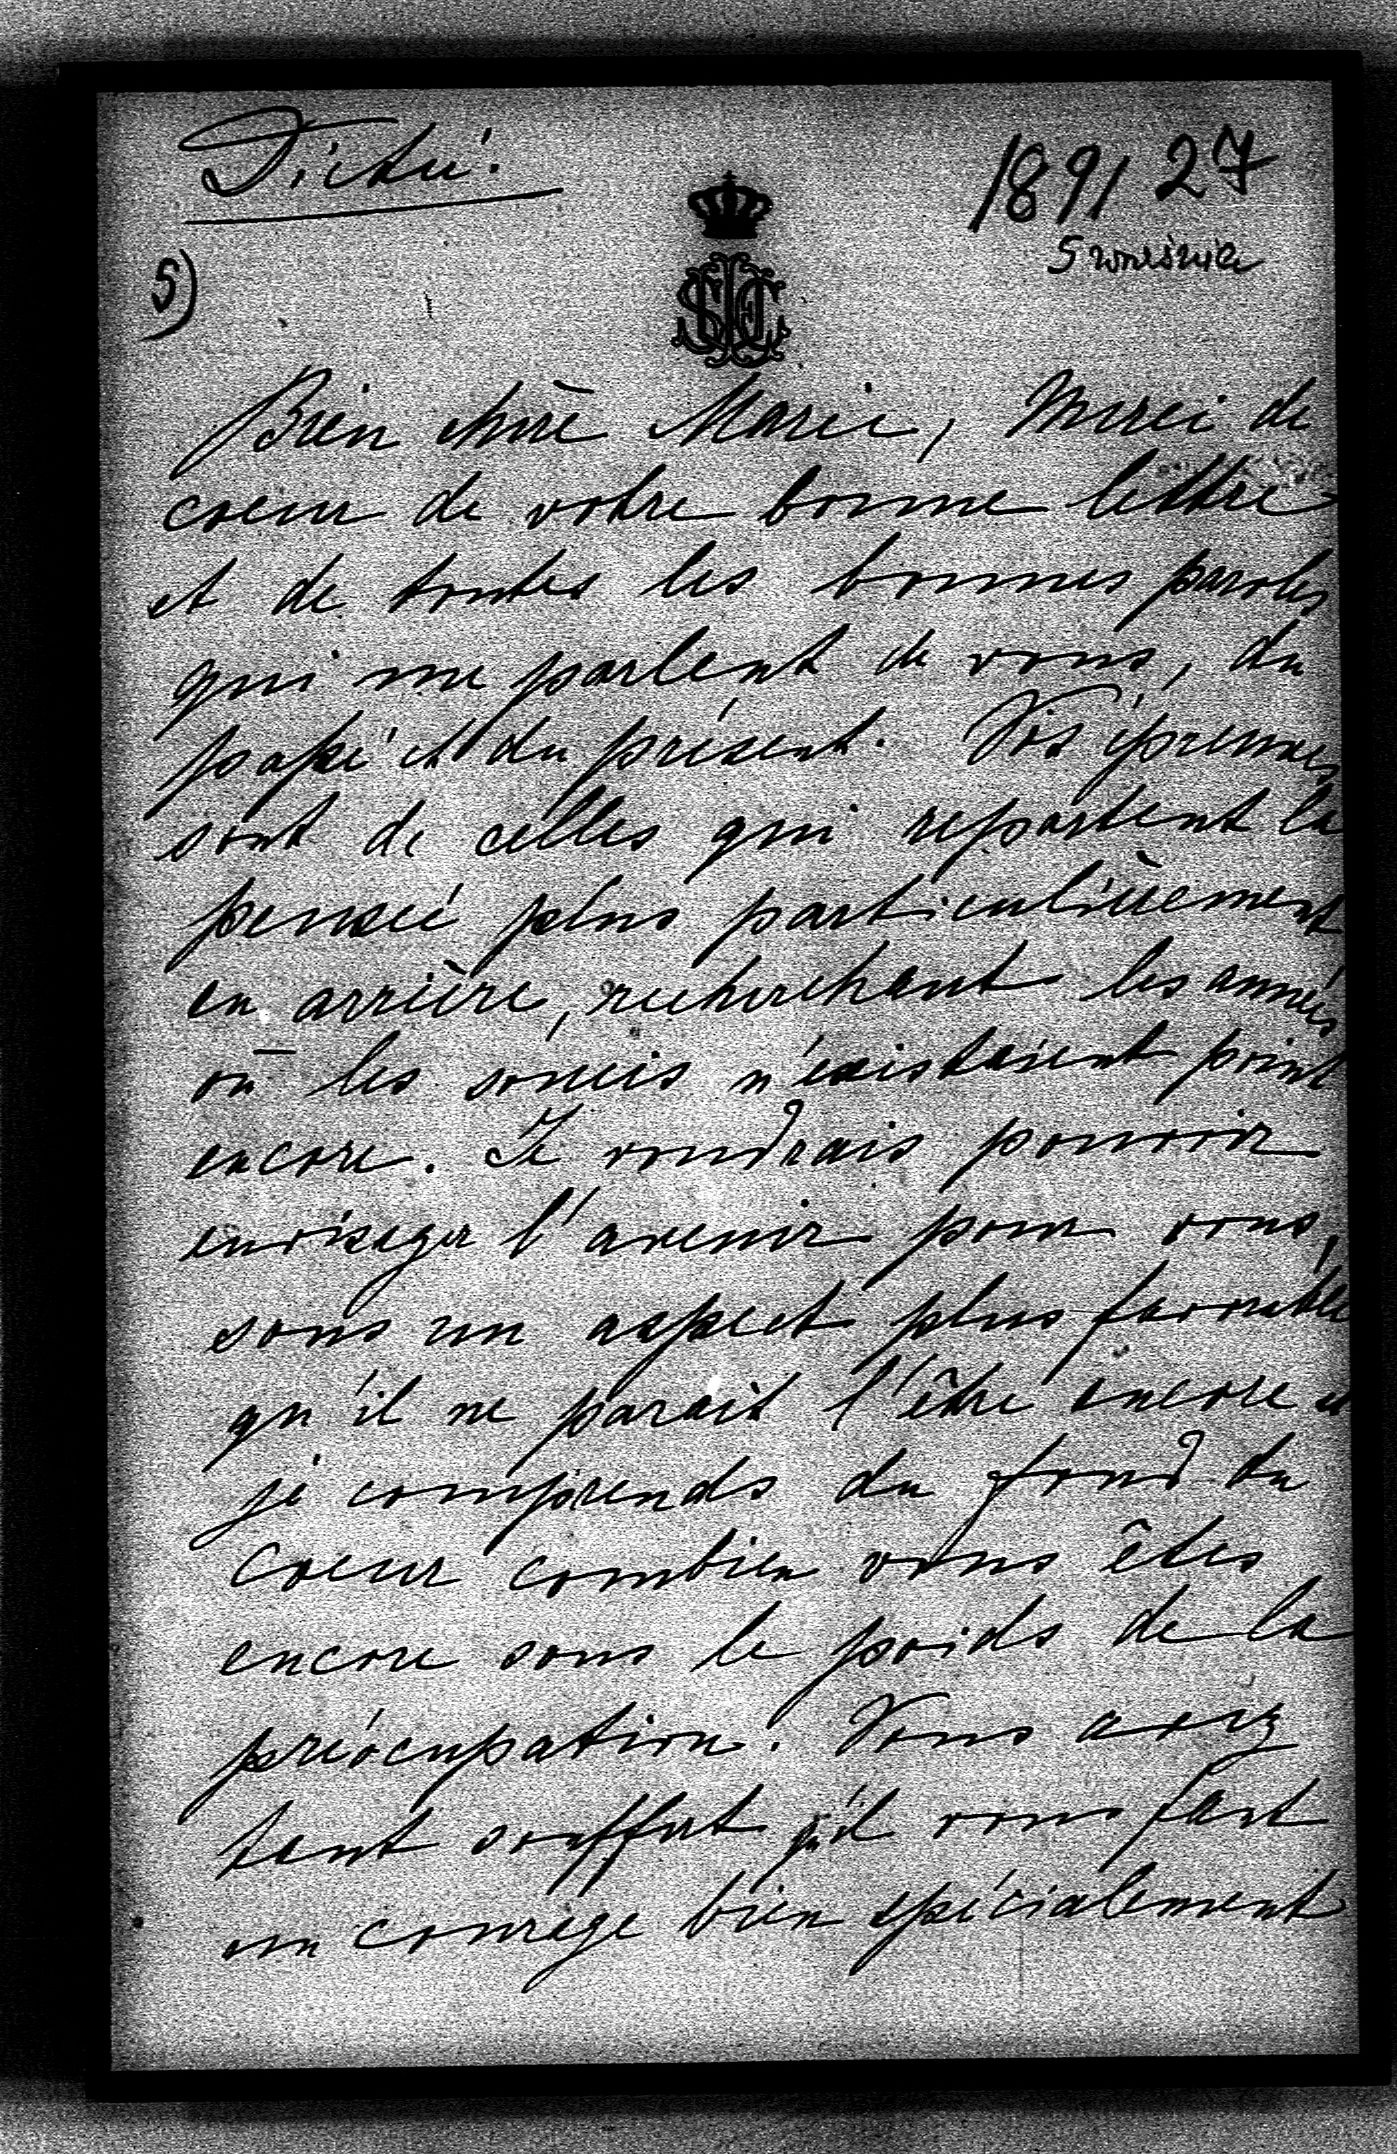 Dictée.
1891 27
5 września
5)
Bien chère Marie, Merci de
coeur de votre bonne lettre
et de toutes les bonnes paroles
qui me parlent de vous, du
passé et du présent. Vos épreuves
sont de celles qui reportent la
pensée plus particulièrement
en arrière, recherchant les années
où les soucis n'existaient point
encore. Je voudrais pouvoir
envisager l'avenir pour vous,
sous un aspect plus favorable
qu'il ne parait l'être encore et
je comprends du fond du
coeur combien vous êtes
encore sous le poids de la
préocupation. Vous avez
tant souffert qu'il vous faut
un courage bien spécialement